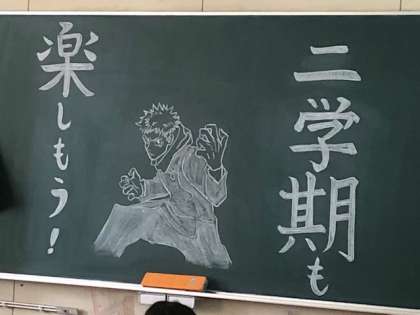 二学期も
楽しもう!